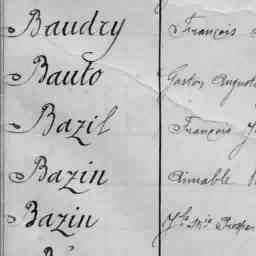 Baudry François
Bauto Gaston Auguste
Bazil François
Bazin Aimable
Bazin